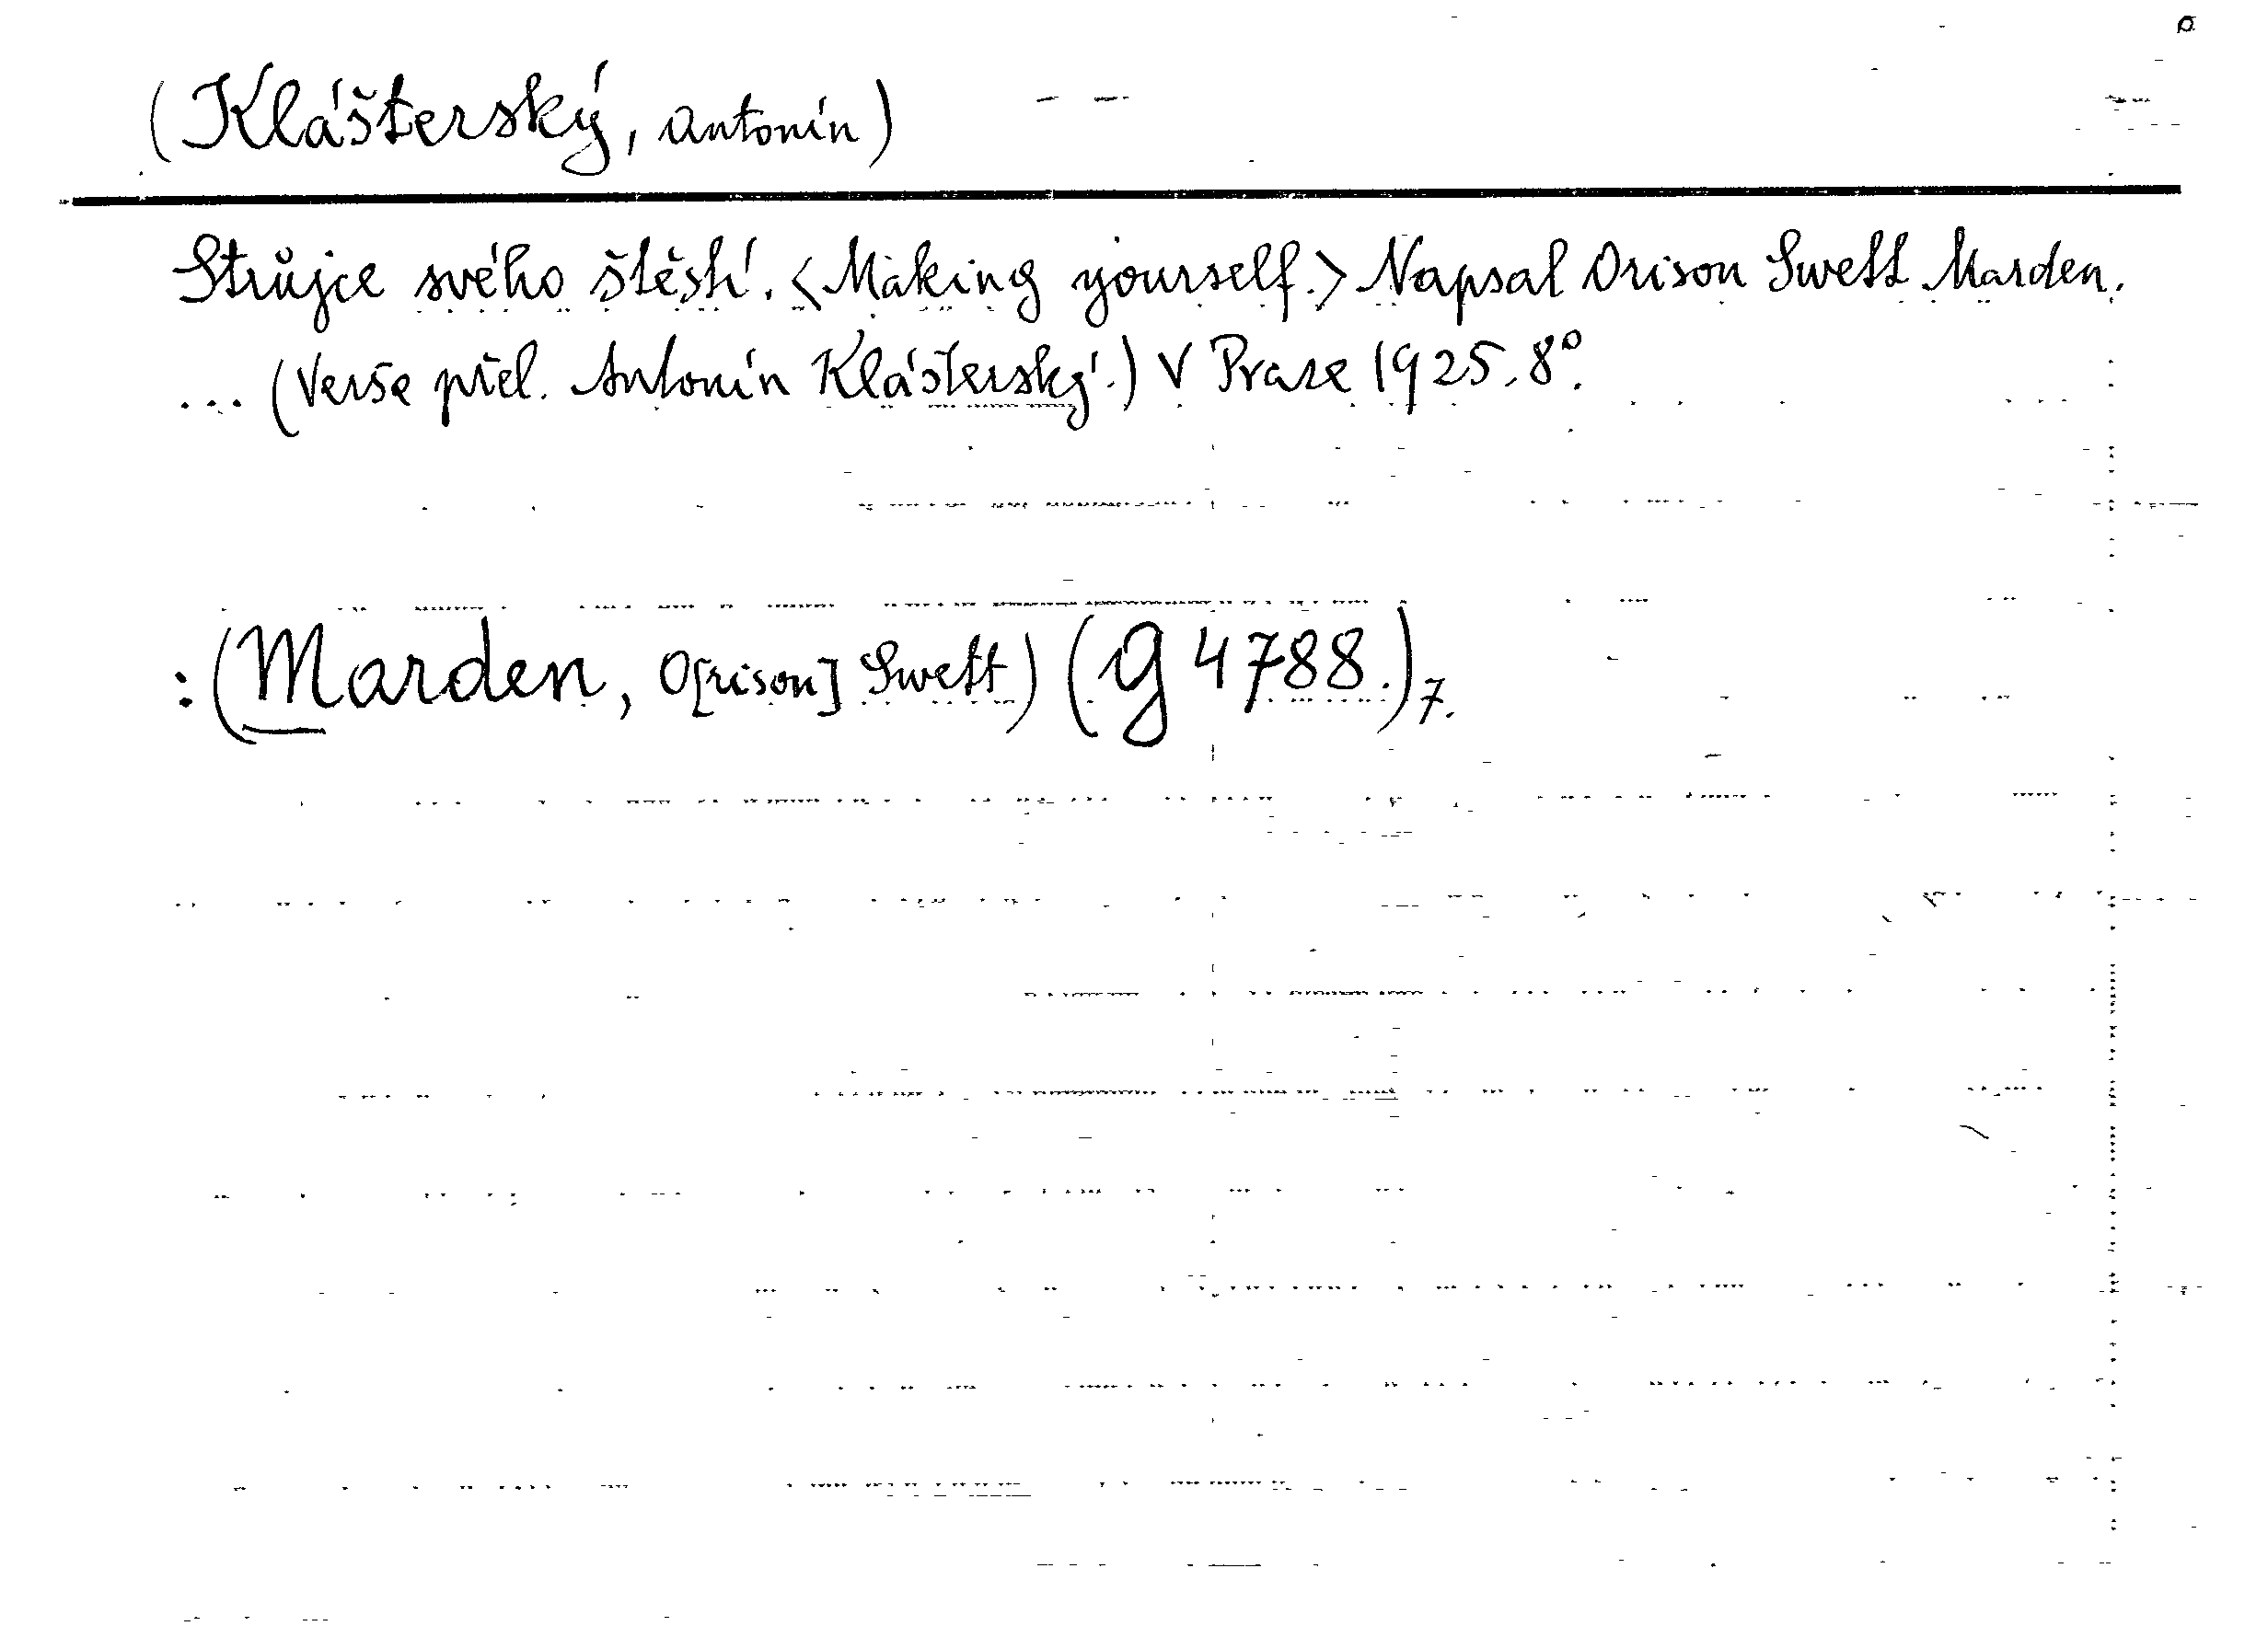 (Klášterský, Antonín)
Strůjce svého štěstí. <Making yourself.> Napsal Orison Swett Marden.
... (Verše přel. Antonín Klášterský.) V Praze 1925. 8°.
: (Marden, O[rison] Swett) (G 4788.) 7.